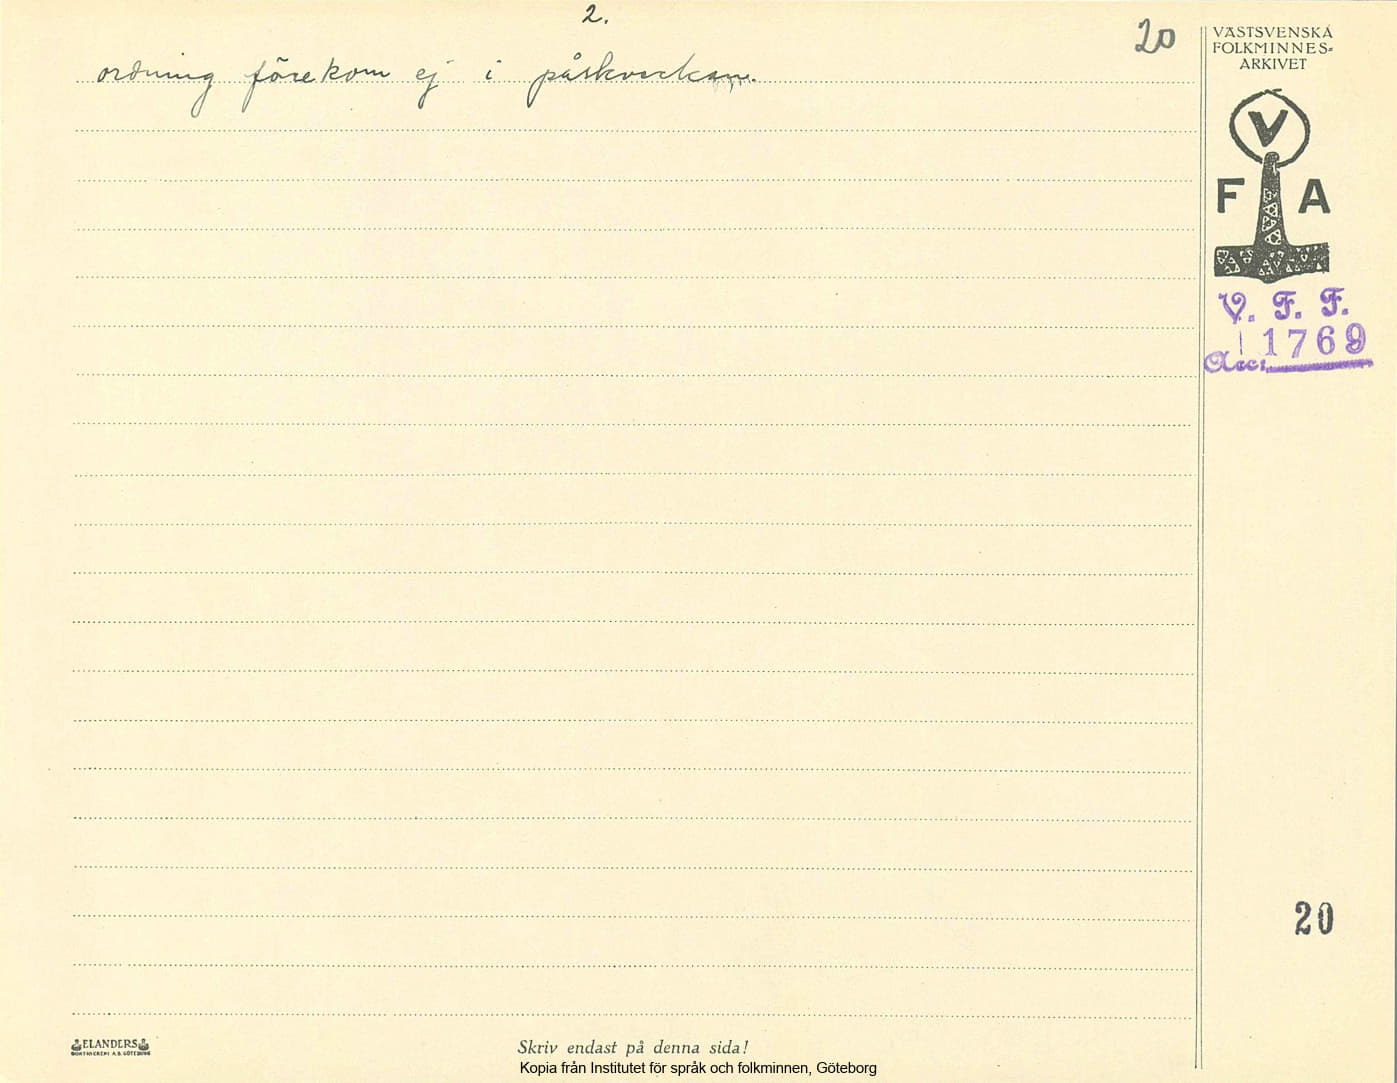 2.
20
ordning förekom ej i påskveckan.
VÄSTSVENSKA
FOLKMINNES-
ARKIVET
V
F A
V. F. F.
Acc: 1769
20
ELANDERS
BOKTRYCKERI A.B. GÖTEBORG
Skriv endast på denna sida!
Kopia från Institutet för språk och folkminnen, Göteborg